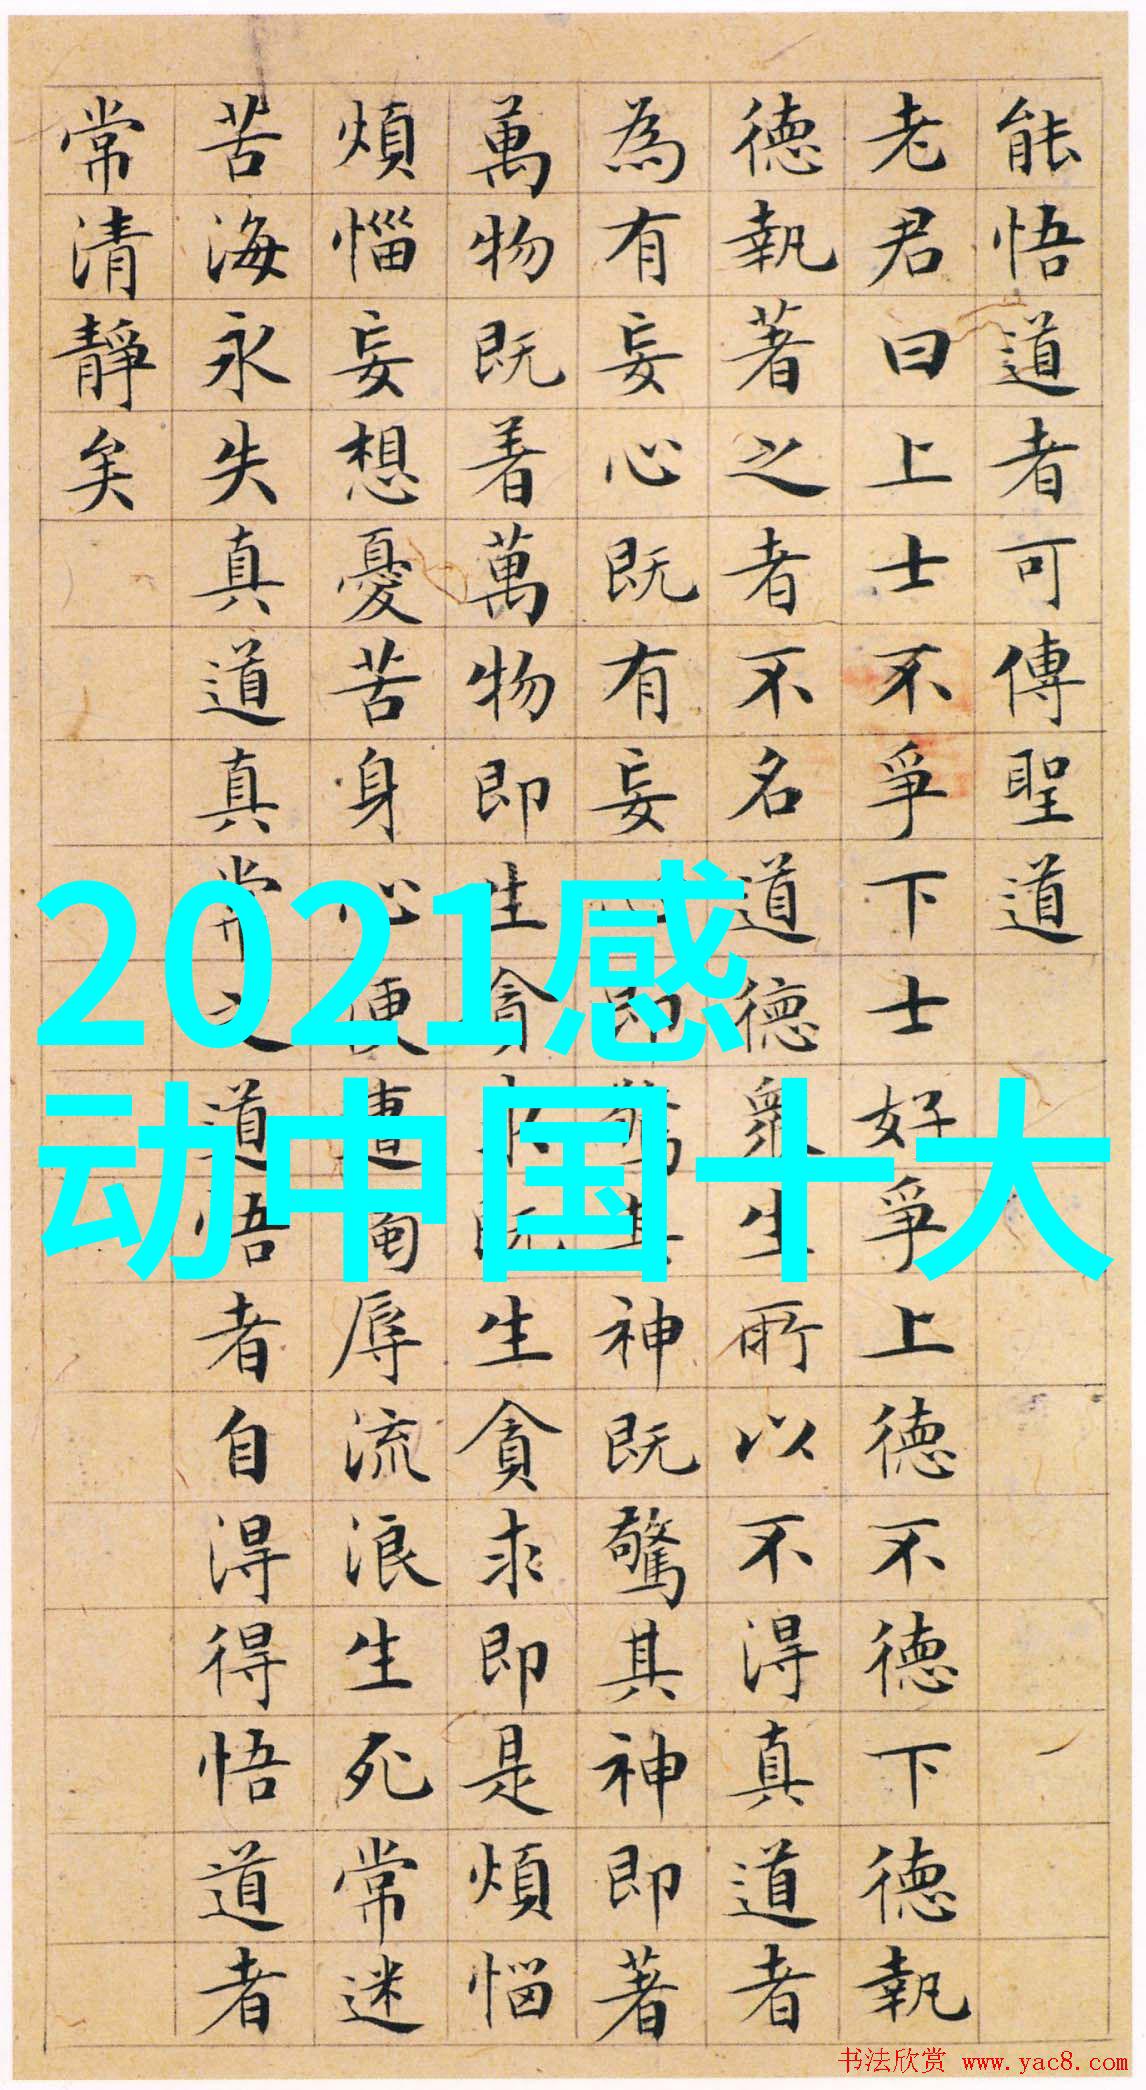 能悟道者可傳聖道
老君曰上士不爭下士好爭上德不德下德執
德執著之者不名道德眾生所以不得真道者
為有妄心既有妄即驚其神既驚其神即著
萬物既着萬物即生貪求既生貪求即是煩惱
煩惱妄想憂苦身心便遭辱流浪生死常迷
苦海永失真道真常之道悟者自得得悟道者
常清靜矣
2021感
动中国十大
书法欣赏 www.yac8.com